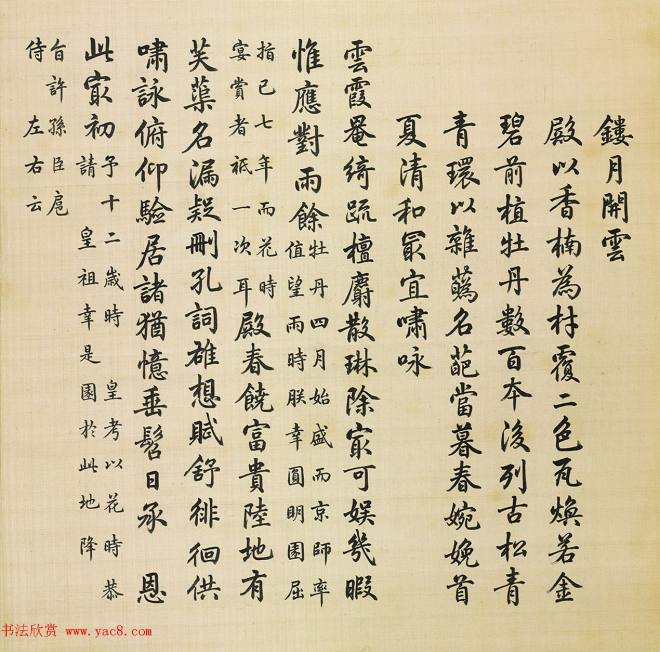 鏤月開雲
殿以香楠為材覆二色瓦煥若金
碧前植牡丹數百本後列古松青
青環以雜蘤名葩當暮春婉娩首
夏清和最宜嘯咏
雲霞罨綺疏檀麝散琳除最可娛幾暇
惟應對雨餘牡丹四月始盛而京師率值望雨時朕幸圓明園屈
指已七年而花時宴賞者祇一次耳殿春饒富貴陸地有
芙蕖名漏疑刪孔詞雄想賦舒徘徊供
嘯詠俯仰驗居諸猶憶垂髫日承恩
此最初予十二歲時皇考以花時恭請皇祖幸是園於此地降
旨許孫臣扈侍左右云
书法欣赏 www.yac8.com